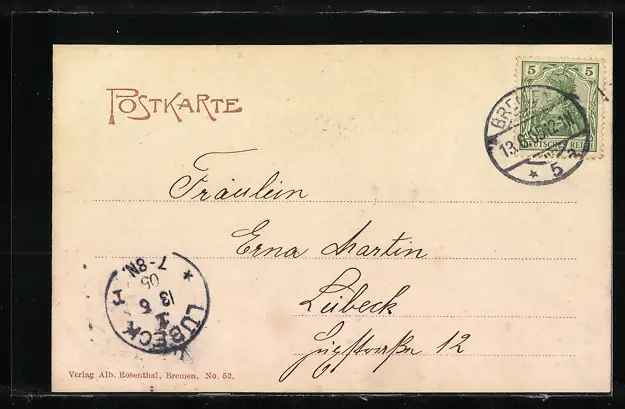 POSTKARTE
5 5
DEUTSCHES REICH
BREMEN
13.6.05.12-1N.
* 5 a
Fräulein
Erna Martin
Lübeck
12
LÜBECK
13 6
05
7-8N.
Verlag Alb. Rosenthal, Bremen. No. 52.